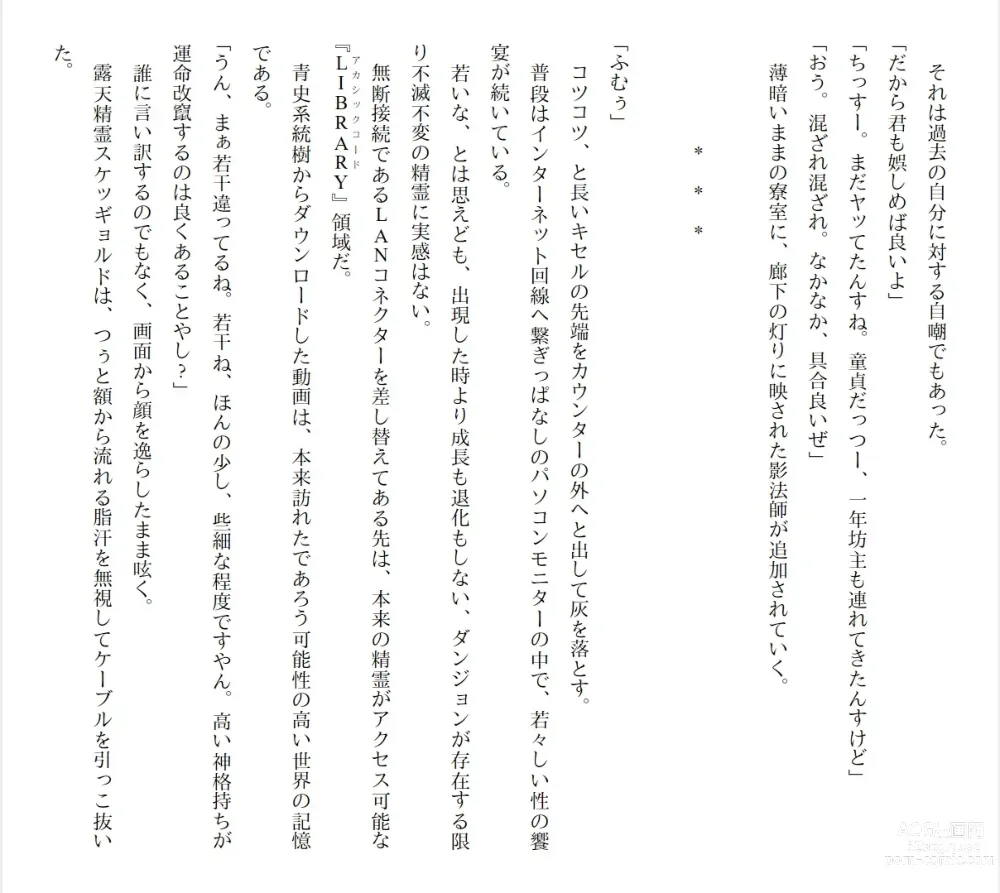 それは過去の自分に対する自嘲でもあった。
「だから君も娯しめば良いよ」
「ちっすー。まだヤッてたんすね。童貞だっつー、一年坊主も連れてきたんすけど」
「おう。混ざれ混ざれ。なかなか、具合良いぜ」
薄暗いままの寮室に、廊下の灯りに映された影法師が追加されていく。
＊　＊　＊
「ふむぅ」
コツコツ、と長いキセルの先端をカウンターの外へと出して灰を落とす。
普段はインターネット回線へ繋ぎっぱなしのパソコンモニターの中で、若々しい性の饗
宴が続いている。
若いな、とは思えども、出現した時より成長も退化もしない、ダンジョンが存在する限
り不滅不変の精霊に実感はない。
無断接続であるLANコネクターを差し替えてある先は、本来の精霊がアクセス可能な
アカシックコード
『LIBRARY』領域だ。
青史系統樹からダウンロードした動画は、本来訪れたであろう可能性の高い世界の記憶
である。
「うん、まぁ若干違ってるね。若干ね、ほんの少し、些細な程度ですやん。高い神格持ちが
運命改竄するのは良くあることやし？」
誰に言い訳するのでもなく、画面から顔を逸らしたまま呟く。
露天精霊スケッギョルドは、つぅと額から流れる脂汗を無視してケーブルを引っこ抜い
た。